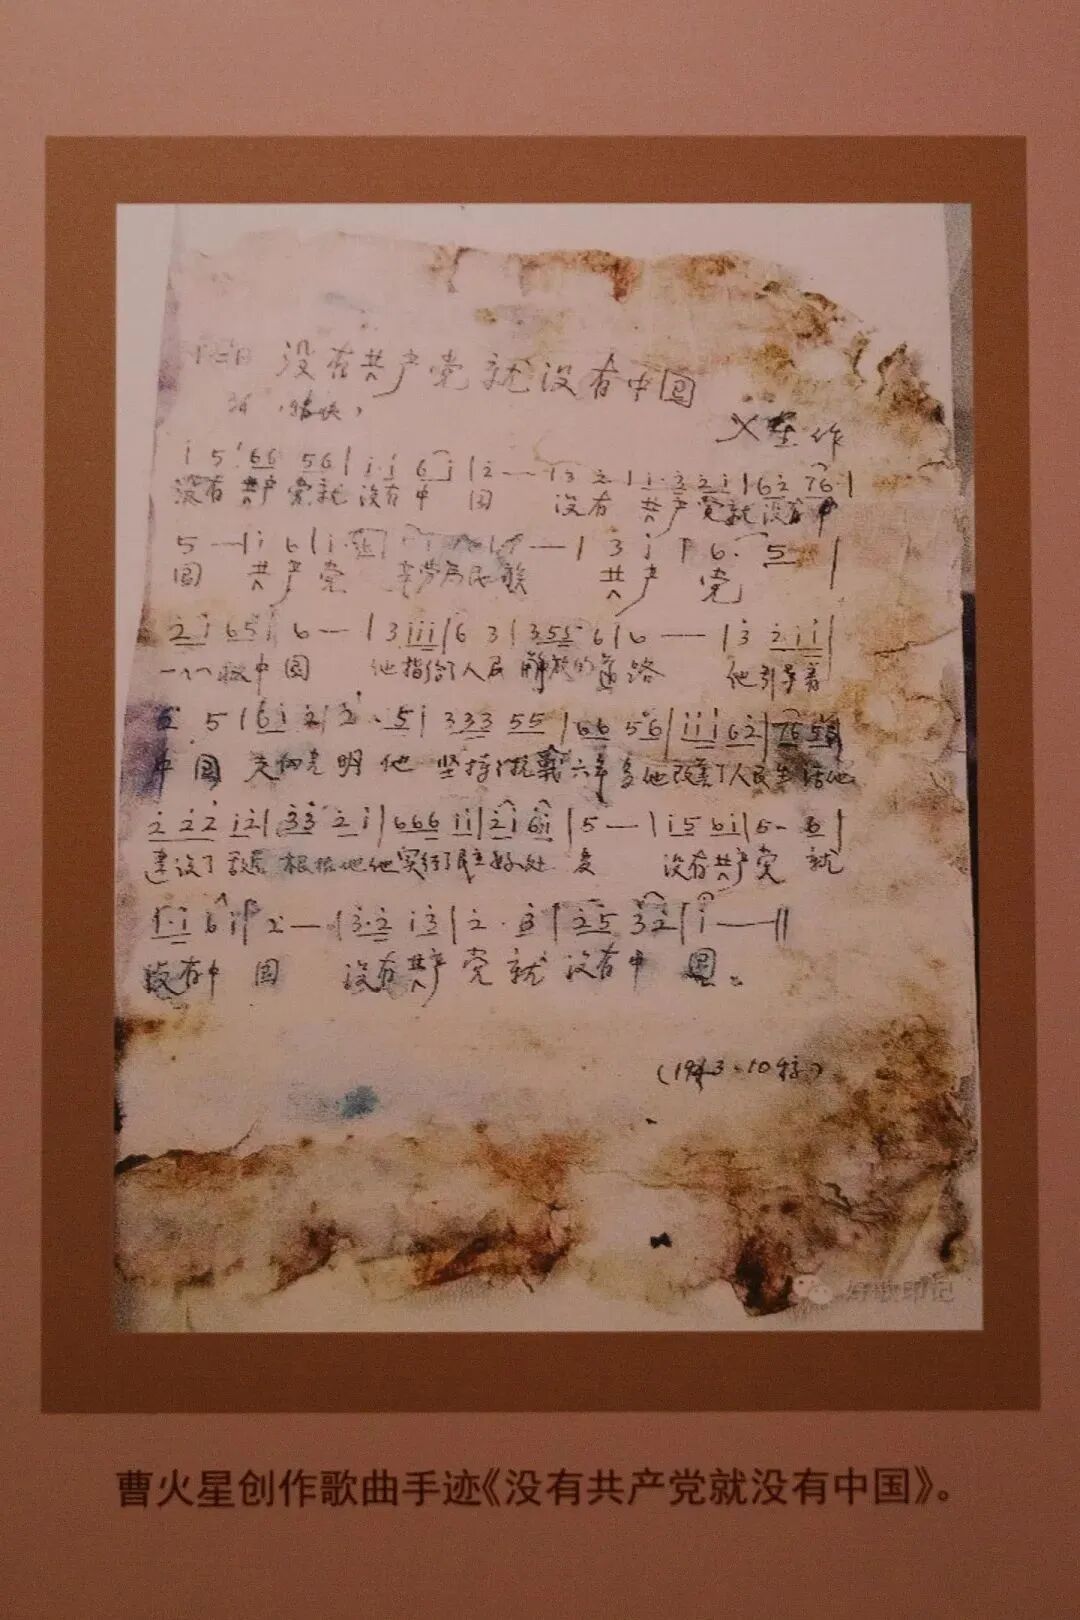 没有共产党就没有中国
火星作
i 5 66 56 | i·i 6 i | 2 — | 3 2 | i·3 2 i | 6 2 76 |
没有 共产 党就 没有 中 国 没有 共产 党就 没有 中
5 — | i 6 | i· — | 3 i | 6· 5 |
国 共产党 辛劳为民族 共产党
2 i 65 | 6 — | 3 iii | 6 3 | 355 6 | 6 — | 3 2·ii |
一心救中国 他指给了人民解放的道路 他引导着
6 5 | 6 i 2 | 2 · 5 | 333 55 | 66 56 | iii 62 | 76 55 |
中国走向光明他 坚持了抗战六年多他改善了人民生活他
2 22 i2 | 33 2 i | 666 ii | 2i 6i | 5 — | i5 6i | 5· 6 |
建设了敌后根据地他实行了民主好处多 没有共产党就
i·i 6 i | 2 — | 3·2 i3 | 2 · 3 | 25 32 | i — ||
没有中国 没有共产党就没有中国。
(1943.10稿)
好歌印记
曹火星创作歌曲手迹《没有共产党就没有中国》。